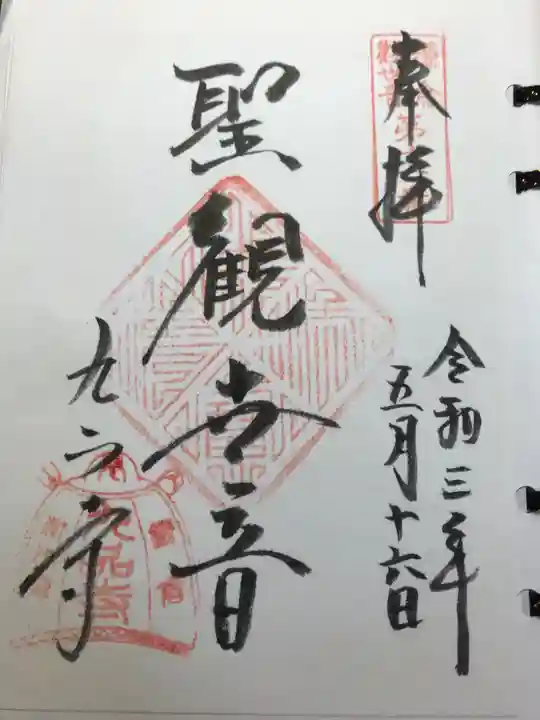 奉拝
令和三年
五月十六日
聖観世音
九品寺